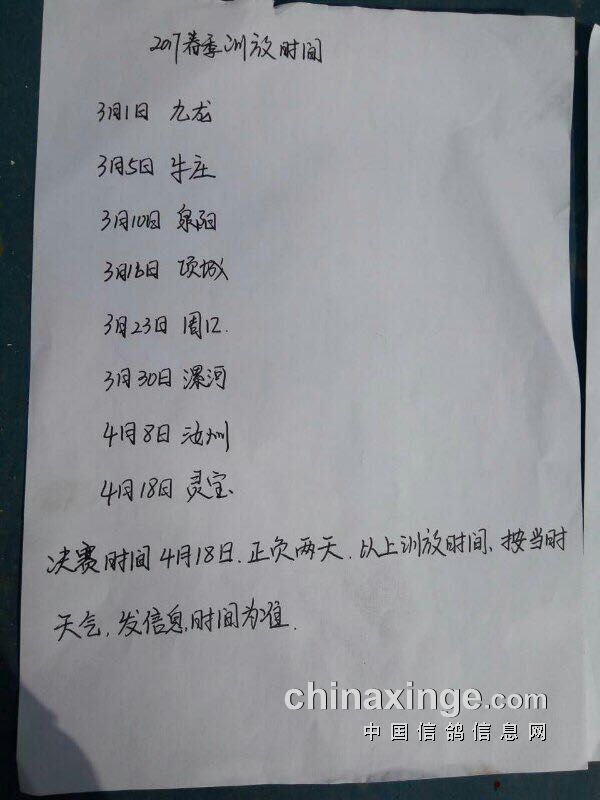 2017春季训放时间
3月1日 九龙
3月5日 牛庄
3月10日 泉阳
3月16日 项城
3月23日 周口.
3月30日 漯河
4月8日 汝州
4月18日 灵宝.
决赛时间4月18日.正负两天.以上训放时间、按当时
天气,发信息,时间为准.
chinaxinge.com
中国信鸽信息网